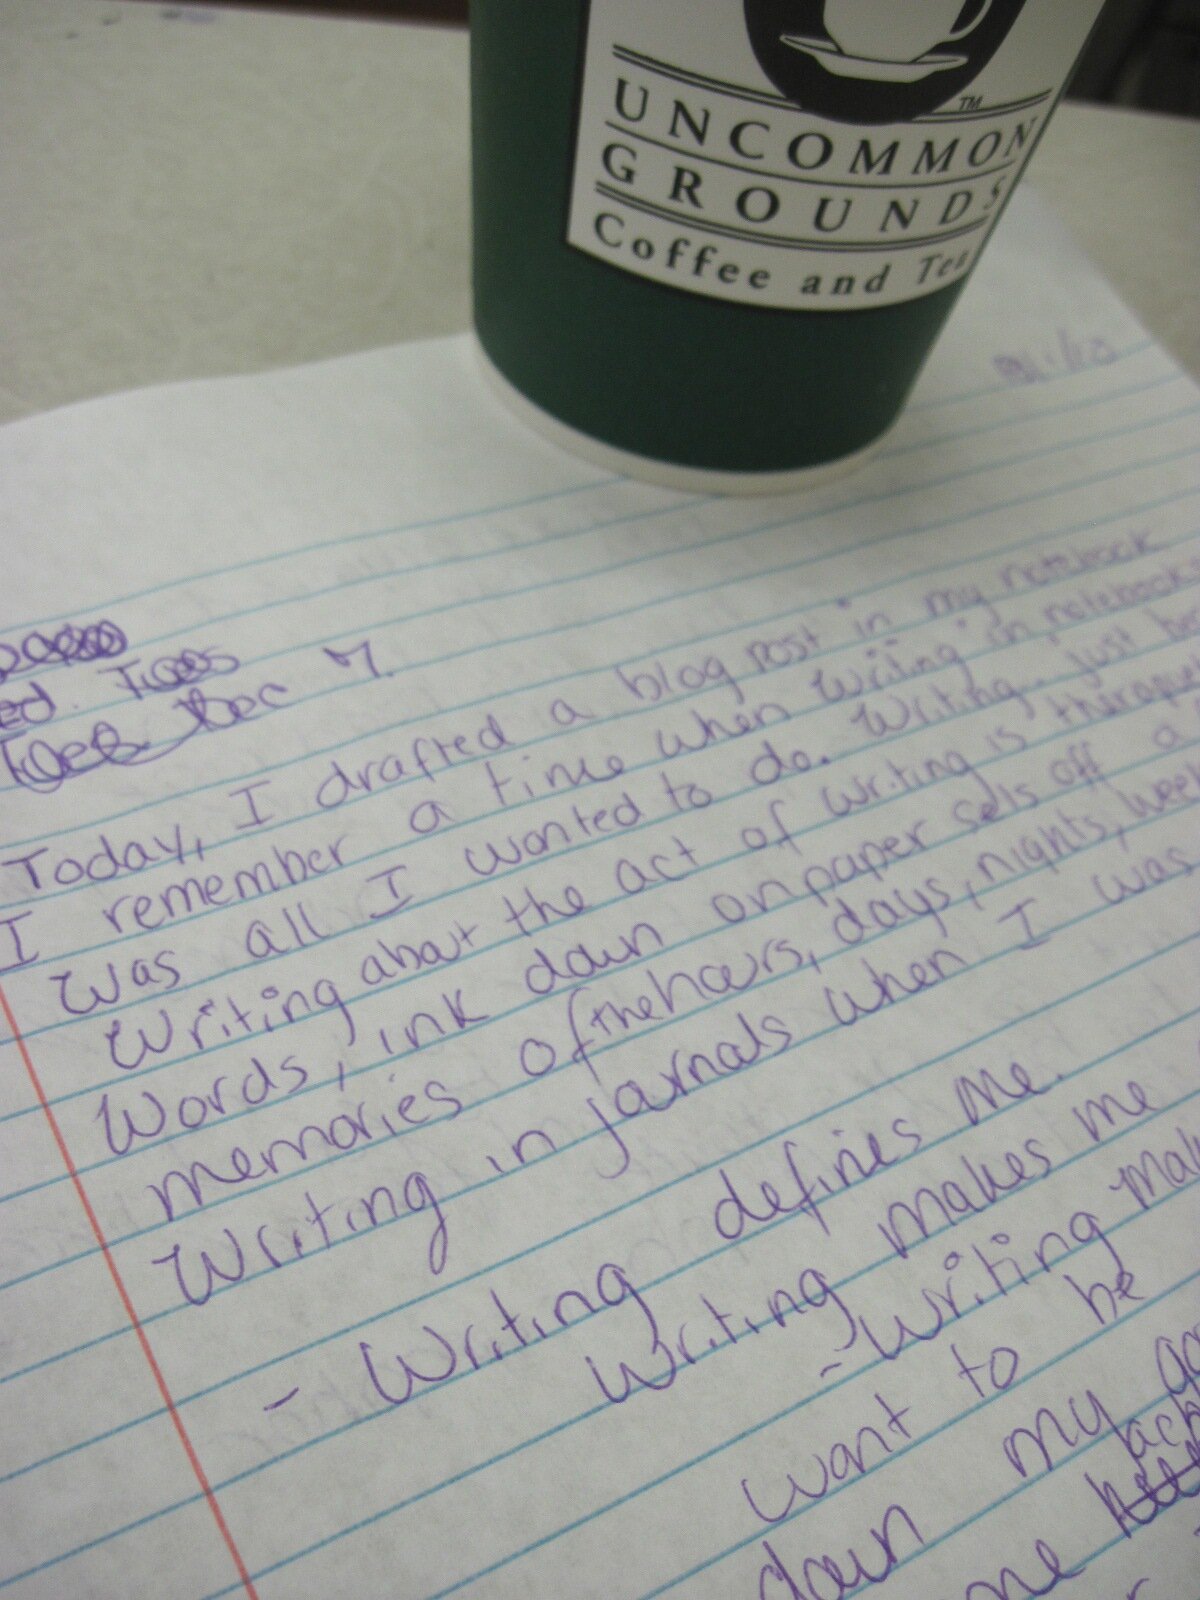 ™
UNCOMMON
GROUNDS
Coffee and Tea
ed. Tues
Dec 7.
Today, I drafted a blog post in my notebook
I remember a time when writing in notebooks
was all I wanted to do. Writing just
Writing about the act of writing is
Words, ink down on paper sets off a
memories of the hours, days, nights,
Writing in journals when I was
- Writing defines me.
Writing makes me
- Writing
want to be
down my
me